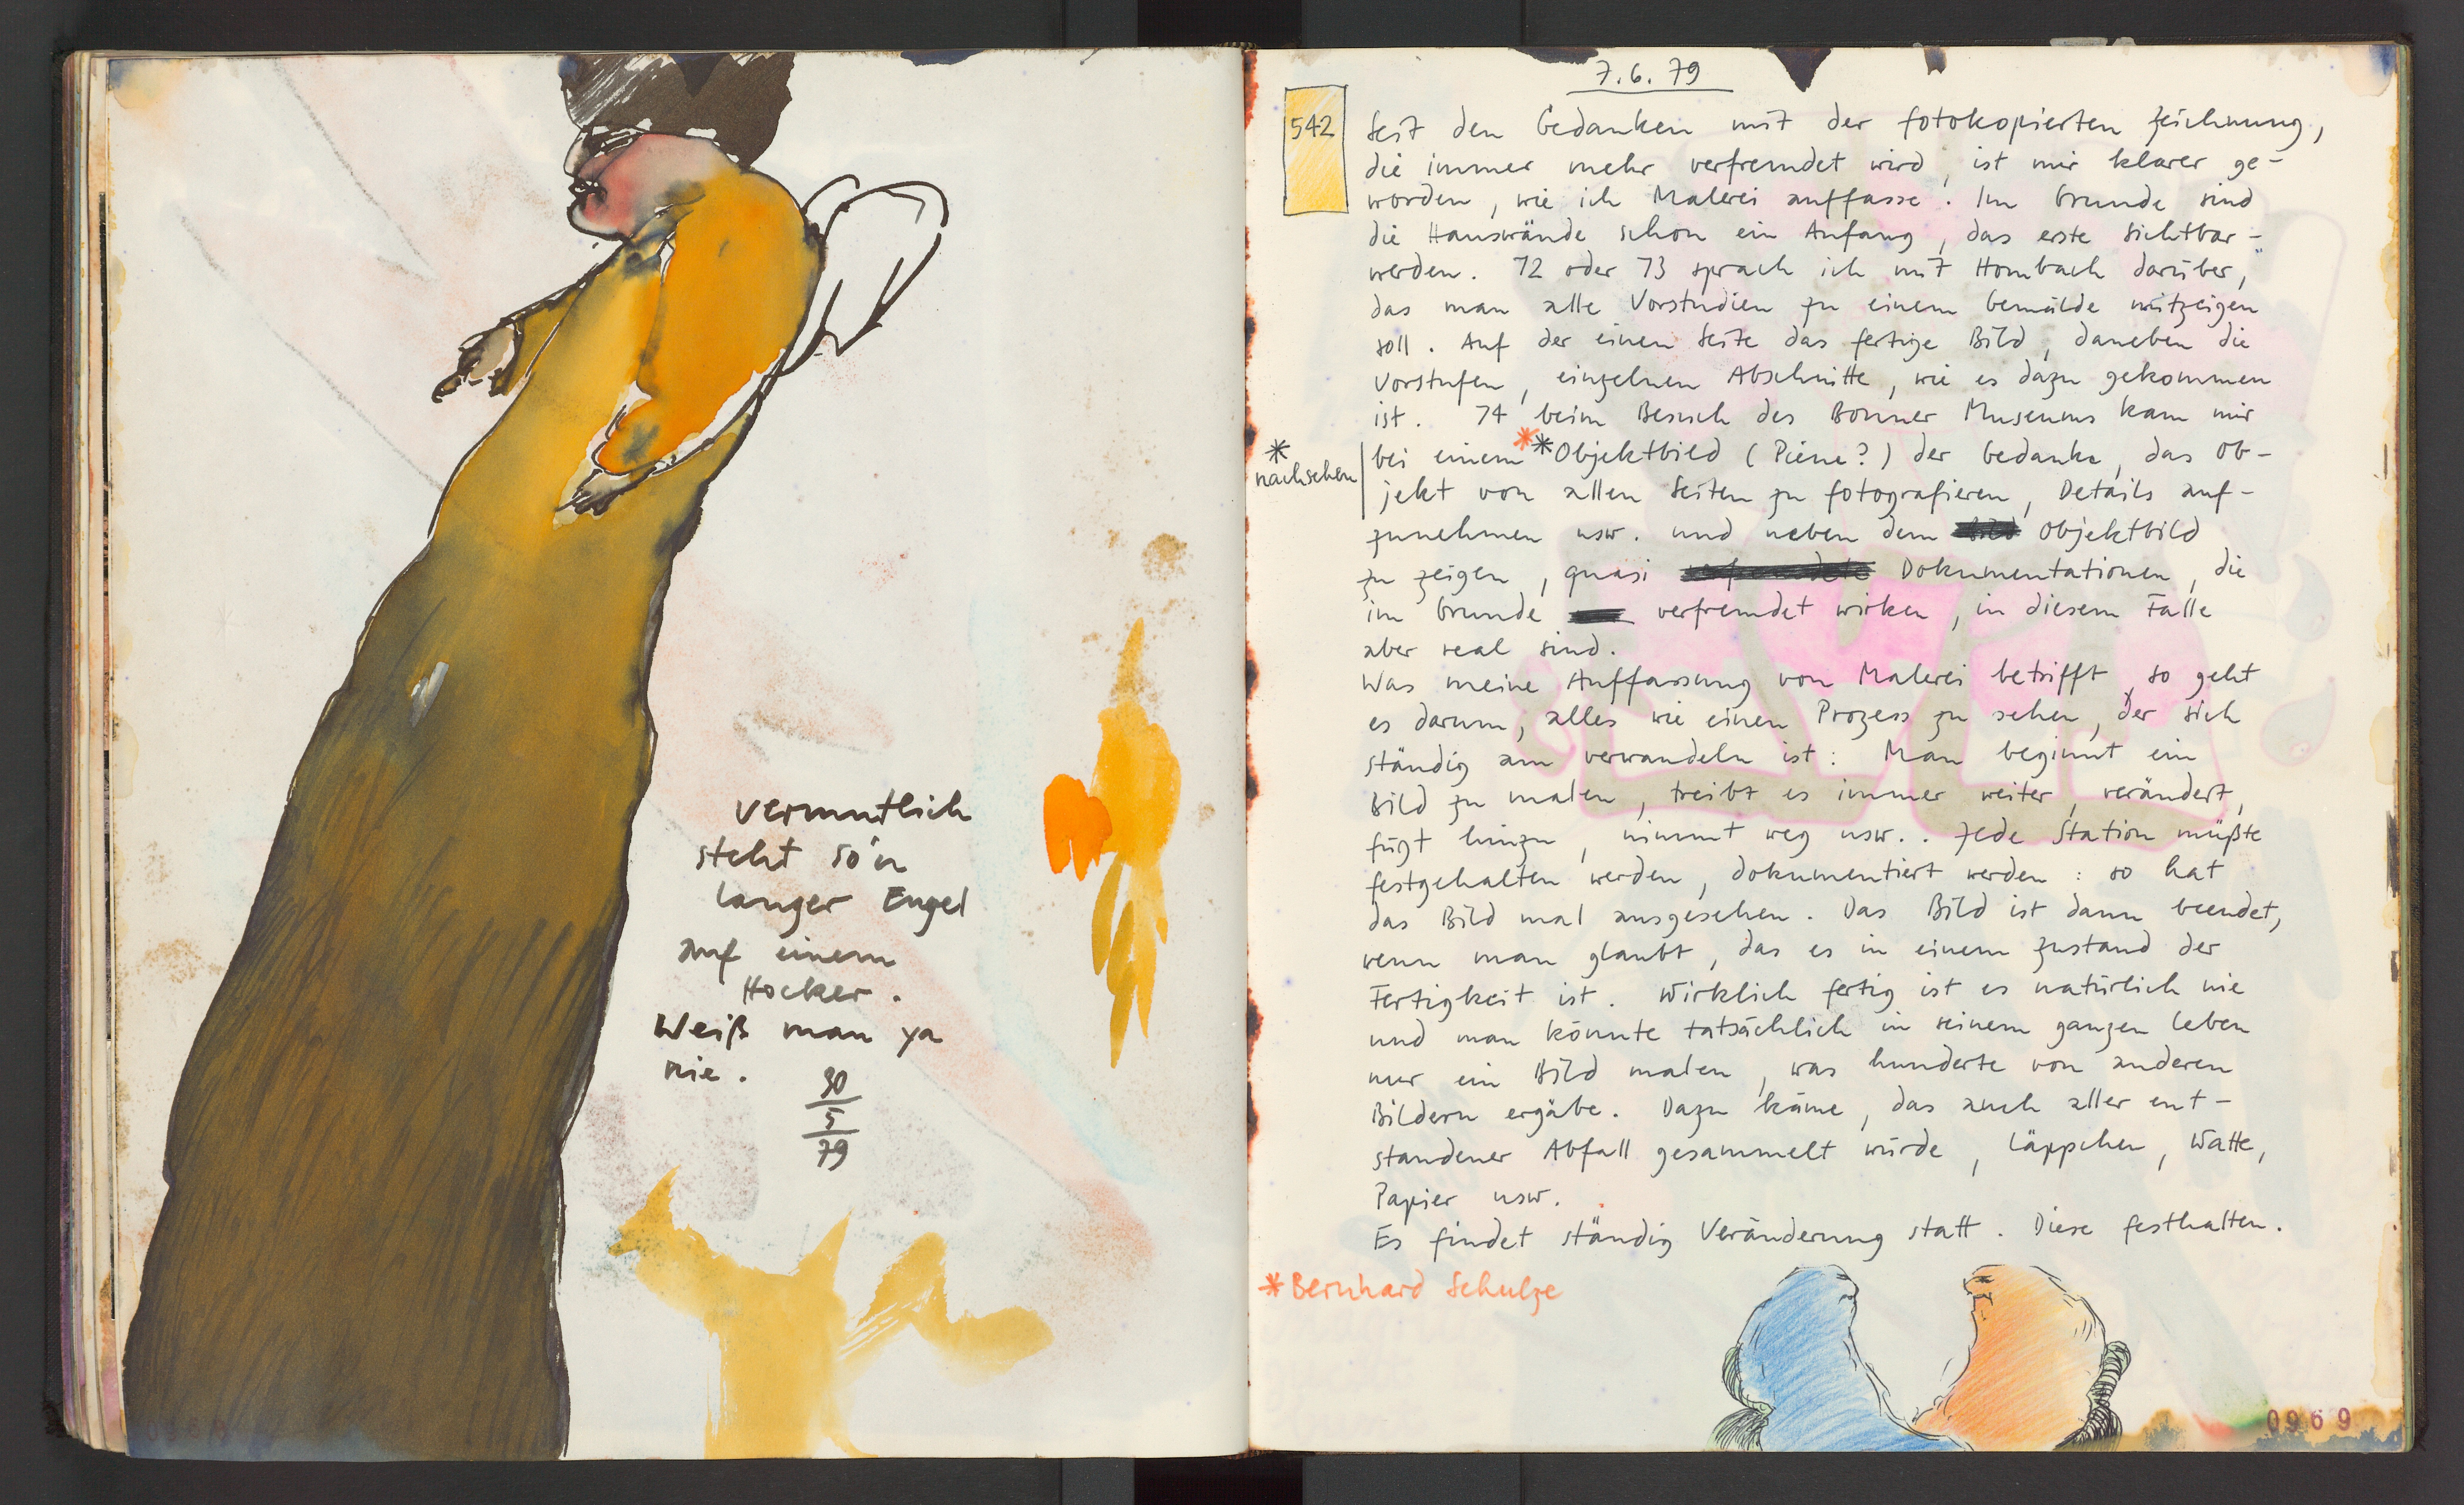 vermutlich
steht so'n
langer Engel
auf einem
Hocker.
Weiß man ja
nie.
30
5
79
7.6.79
542
Seit den Gedanken mit der fotokopierten Zeichnung,
die immer mehr verfremdet wird, ist mir klarer ge-
worden, wie ich Malerei auffasse. Im Grunde sind
die Hauswände schon ein Anfang, das erste Sichtbar-
werden. 72 oder 73 sprach ich mit Hombach darüber,
das man alle Vorstudien zu einem Gemälde mitzeigen
soll. Auf der einen Seite das fertige Bild, daneben die
Vorstufen, einzelnen Abschnitte, wie es dazu gekommen
ist. 74 beim Besuch des Bonner Museums kam mir
bei einem **Objektbild (Piene?) der Gedanke, das Ob-
jekt von allen Seiten zu fotografieren, Details auf-
zunehmen usw. und neben dem Objektbild
zu zeigen, quasi Dokumentationen, die
im Grunde verfremdet wirken, in diesem Falle
aber real sind.
*
nachsehen
Was meine Auffassung von Malerei betrifft, so geht
es darum, alles wie einen Prozess zu sehen, der sich
ständig am verwandeln ist: Man beginnt ein
Bild zu malen, treibt es immer weiter, verändert,
fügt hinzu, nimmt weg usw.. Jede Station müßte
festgehalten werden, dokumentiert werden: so hat
das Bild mal ausgesehen. Das Bild ist dann beendet,
wenn man glaubt, das es in einem Zustand der
Fertigkeit ist. Wirklich fertig ist es natürlich nie
und man könnte tatsächlich in seinem ganzen Leben
nur ein Bild malen, was hunderte von anderen
Bildern ergäbe. Dazu käme, das auch aller ent-
standener Abfall gesammelt würde, Läppchen, Watte,
Papier usw.
Es findet ständig Veränderung statt. Diese festhalten.
*Bernhard Schulze
0969